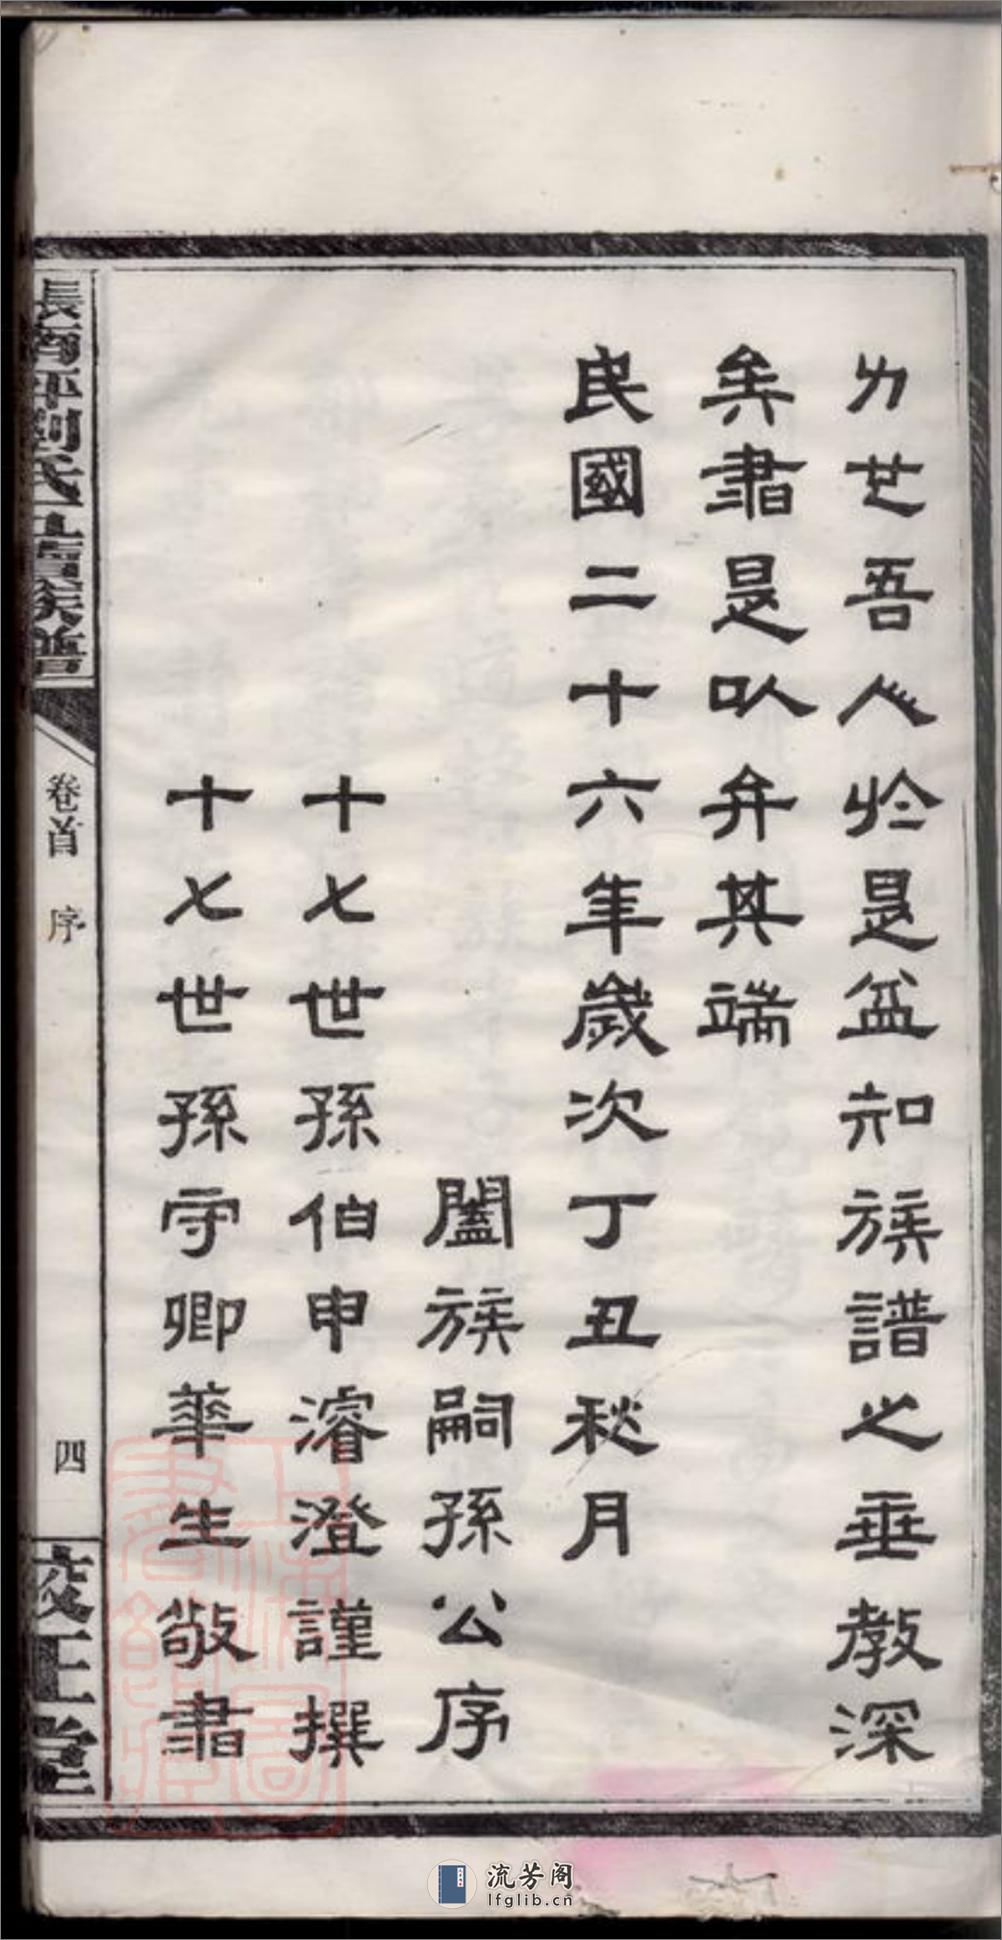 力世吾人於是益知族譜之垂教深
矣書是以弁其端
民國二十六年歲次丁丑秋月
闔族嗣孫公序
十七世孫伯申濬澄謹撰
十七世孫守卿華生敬書
長甯平劉氏五續族譜
卷首 序
四
校正堂
流芳阁
lfglib.cn